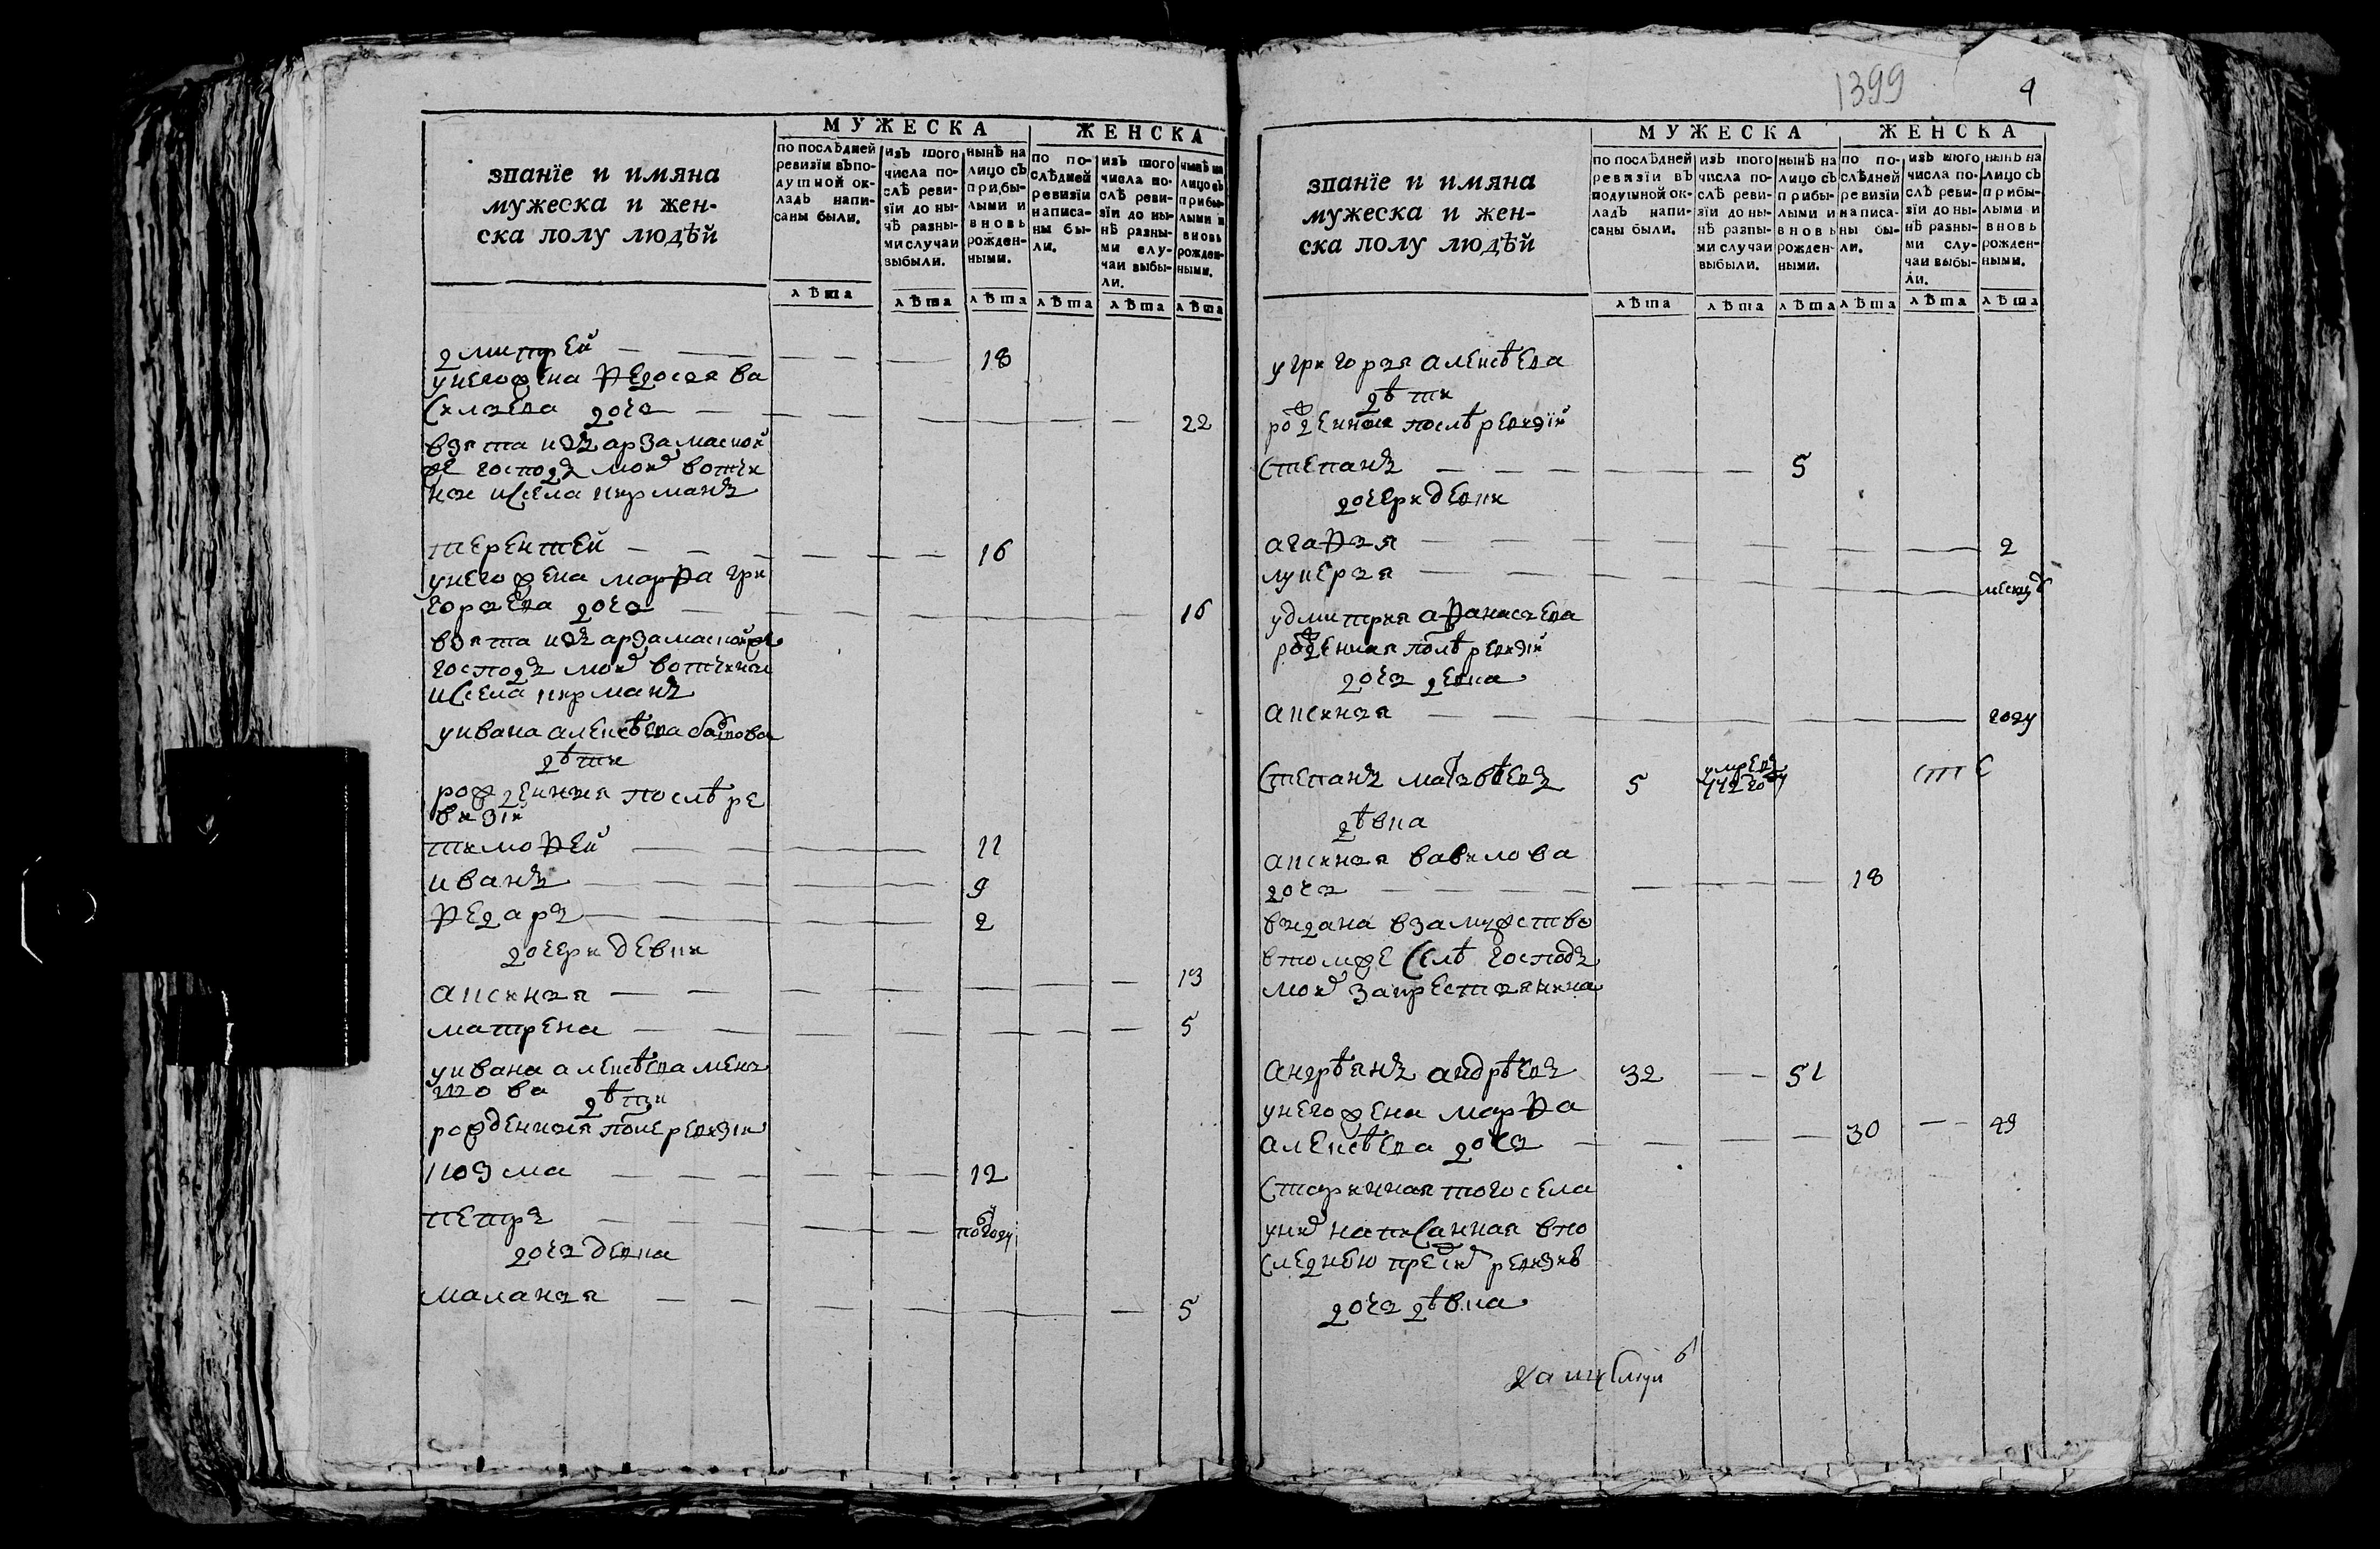 МУЖЕСКА ЖЕНСКА
званїе и имяна
мужеска и жен-
ска полу людѣй
по послѣдней ревизїи въ по-душной ок-ладъ напи-саны были.
изъ того числа по-слѣ реви-зїи до ны-нѣ разны-ми случаи выбыли.
нынѣ на лицо съ прибы-лыми и вновь рожден-ными.
по по-слѣдней ревизїи написа-ны бы-ли.
изъ того числа по-слѣ реви-зїи до ны-нѣ разны-ми слу-чаи выбы-ли.
нынѣ на лицо съ прибы-лыми и вновь рожден-ными.
лѣта лѣта лѣта лѣта лѣта лѣта
дмитрей 18
унего жена федосья ва
сильева дочь 22
взята изъ арзамаской
же господъ моих вотчи
ны исела кирманъ
терентей 16
унего жена марфа гри
горьева дочь 16
взята изъ арзамаской же
господъ моих вотчины
исела кирманъ
уивана алексѣева
дѣти
рожденныя послѣ ре
визіи
тимофей 11
иванъ 9
федаръ 2
дочери девки
аксинья 13
матрена 5
уивана алексѣева мень
шова дѣти
рожденныя после ревизіи
козма 12
петръ полгоду
дочь девка
маланья 5
1399 4
МУЖЕСКА ЖЕНСКА
званїе и имяна
мужеска и жен-
ска полу людѣй
по послѣдней ревизїи въ подушной ок-ладъ напи-саны были.
изъ того числа по-слѣ реви-зїи до ны-нѣ разны-ми случаи выбыли.
нынѣ на лицо съ прибы-лыми и вновь рожден-ными.
по по-слѣдней ревизїи написа-ны бы-ли.
изъ того числа по-слѣ реви-зїи до ны-нѣ разны-ми слу-чаи выбы-ли.
нынѣ на лицо съ прибы-лыми и вновь рожден-ными.
лѣта лѣта лѣта лѣта лѣта лѣта
угригорья алексѣева
дѣти
рожденныя послѣ ревизїи
степанъ 5
дочери девки
агафья 2
лукерья
удмитрия афанасьева
рожденная послѣ ревизїи
дочь девка
аксинья году
степанъ матвѣевъ 5 умре въ 772 году
дѣвка
аксинья вавилова
дочь 18
выдана взамужство
втомже селѣ господъ
моих закрестьянина
андрѣянъ андрѣевъ 32 51
унего жена марфа
алексѣева дочь 30 49
старинная того села
уних написанная впо
следнюю пред сим ревизию
дочь дѣвка